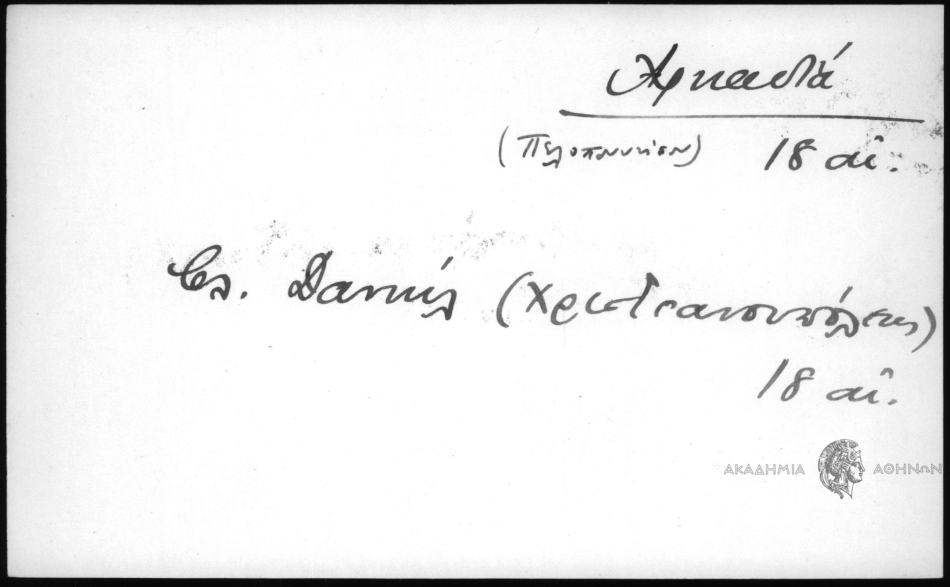 Ἀρκαδιά
(Πελοποννήσου) 18 αἰ.
βλ. Δανιήλ (Χριστιανουπόλεως)
18 αἰ.
ΑΚΑΔΗΜΙΑ ΑΘΗΝΩΝ